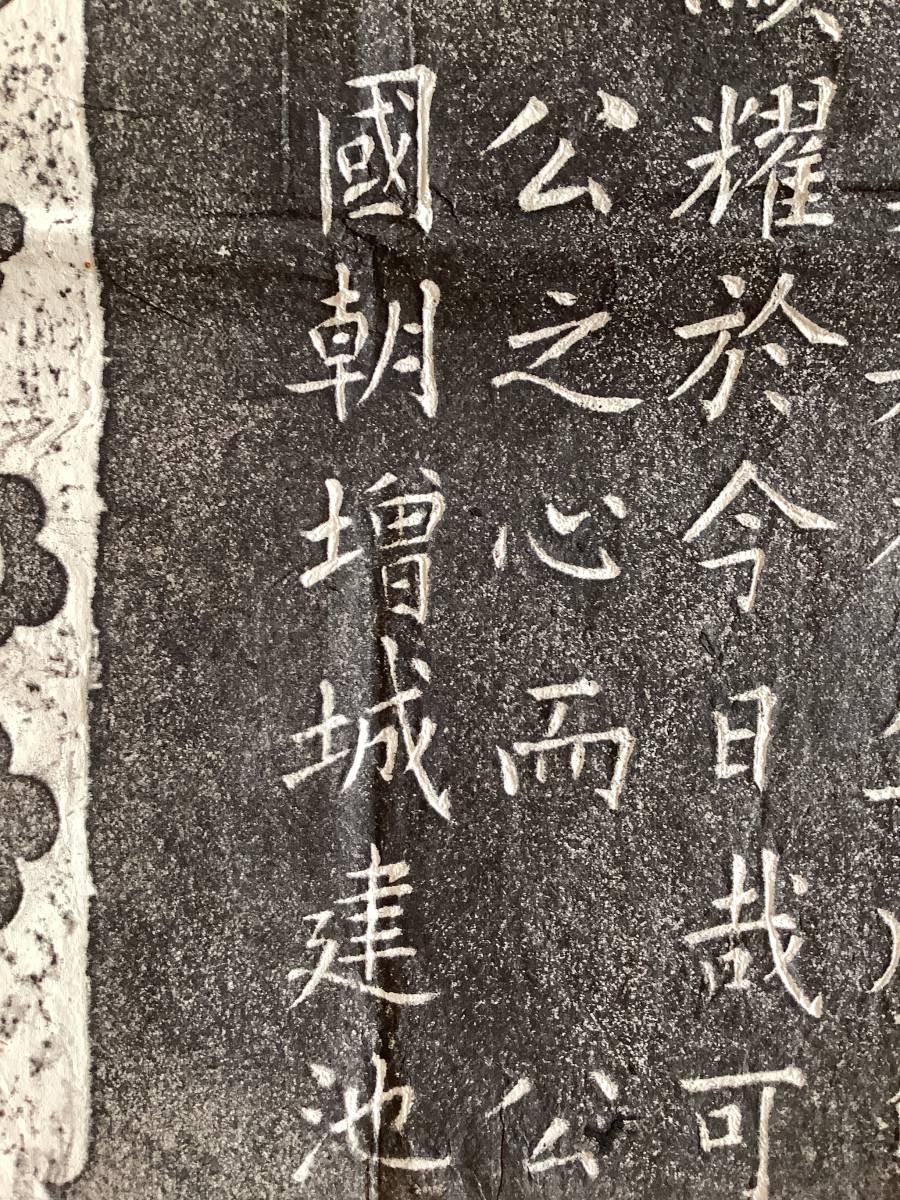 耀於今日哉可
公之心而公
國朝增城建池